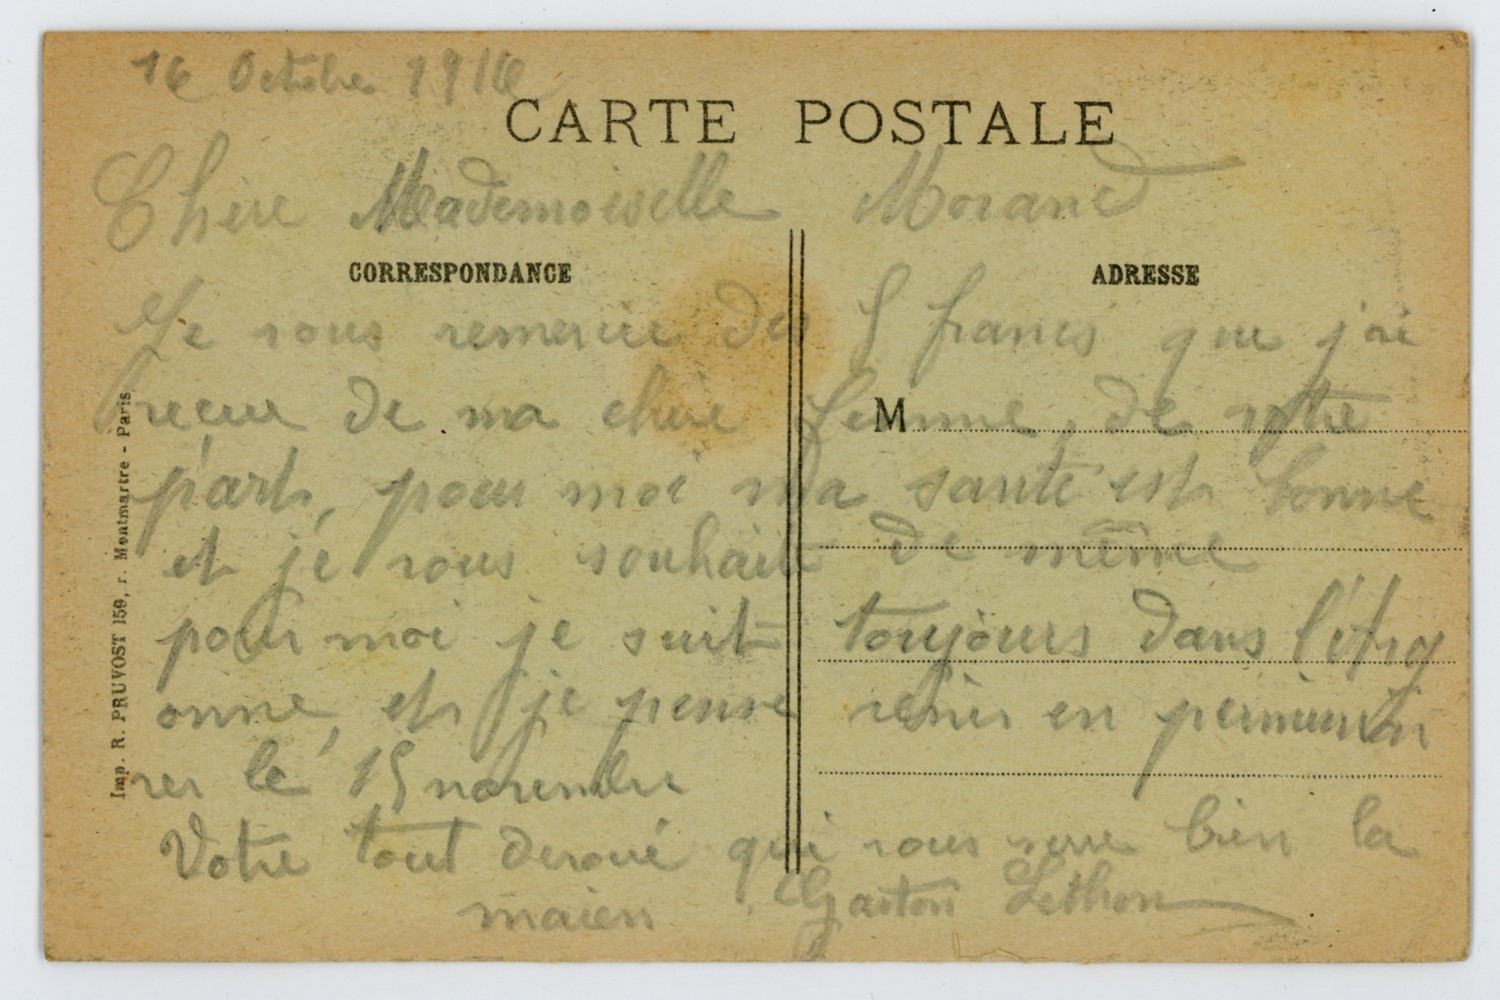 16 Octobre 1916
CARTE POSTALE
Chère Mademoiselle Morand
CORRESPONDANCE
ADRESSE
Je vous remercie des 5 francs que j'ai
recue de ma chère femme, de votre
M
part, pour moi ma santé est bonne
et je vous souhaite de même
pour moi je suit toujours dans l'Arg
onne, et je pense venir en permission
ver le 15 novembre
Votre tout dévoué qui vous serre bien la
maien Gaston Lethon
Imp. R. PRUVOST 159, r. Montmartre - Paris